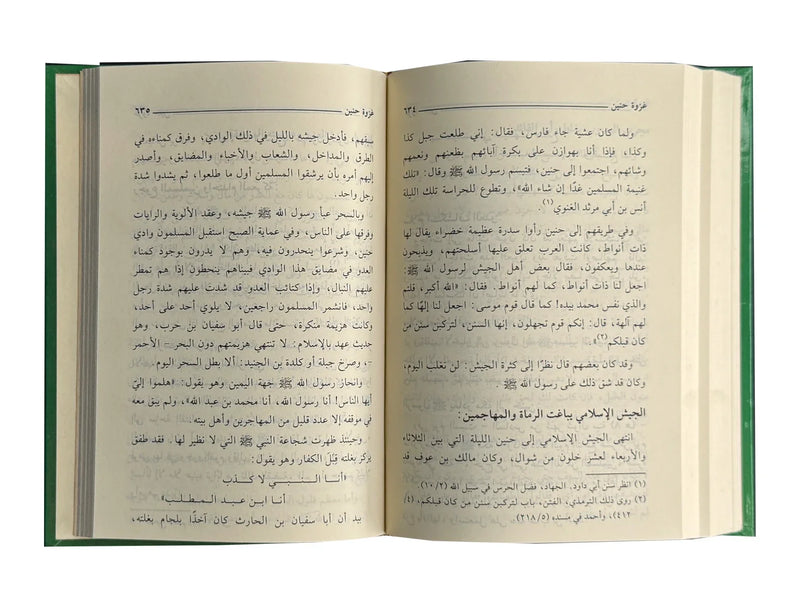 غزوة حنين ٦٣٤
ولما كان عشية جاء فارس، فقال: إني طلعت جبل كذا
وكذا، فإذا أنا بهوازن على بكرة آبائهم بظعنهم ونعمهم
وشائهم، اجتمعوا إلى حنين، فتبسم رسول الله ﷺ وقال: «تلك
غنيمة المسلمين غدًا إن شاء الله»، وتطوع للحراسة تلك الليلة
أنس بن أبي مرثد الغنوي(١).
وفي طريقهم إلى حنين رأوا سدرة عظيمة خضراء يقال لها
ذات أنواط، كانت العرب تعلق عليها أسلحتهم، ويذبحون
عندها ويعكفون، فقال بعض أهل الجيش لرسول الله ﷺ:
اجعل لنا ذات أنواط، كما لهم أنواط. فقال: «الله أكبر، قلتم
والذي نفس محمد بيده! كما قال قوم موسى: اجعل لنا إلهًا كما
لهم آلهة، قال: إنكم قوم تجهلون، إنها السنن، لتركبن سنن من
كان قبلكم(٢)».
وقد كان بعضهم قال نظرًا إلى كثرة الجيش: لن نغلب اليوم،
وكان قد شق ذلك على رسول الله ﷺ.
الجيش الإسلامي يباغت الرماة والمهاجمين:
انتهى الجيش الإسلامي إلى حنين الليلة التي بين الثلاثاء
والأربعاء لعشر خلون من شوال، وكان مالك بن عوف قد
(١) انظر سنن أبي داود. الجهاد، فضل الحرس في سبيل الله (١٠/٢)
(٢) روى ذلك الترمذي، الفتن، باب لتركبن سنن من كان قبلكم، (٤/
٤١٢)، وأحمد في مسنده (٢١٨/٥)
غزوة حنين ٦٣٥
سبقهم، فأدخل جيشه بالليل في ذلك الوادي، وفرق كمناءه في
الطرق والمداخل، والشعاب والأخباء والمضايق، وأصدر
إليهم أمره بأن يرشقوا المسلمين أول ما طلعوا، ثم يشدوا شدة
رجل واحد.
وبالسحر عبأ رسول الله ﷺ جيشه، وعقد الألوية والرايات
وفرقها على الناس، وفي عماية الصبح استقبل المسلمون وادي
حنين، وشرعوا ينحدرون فيه، وهم لا يدرون بوجود كمناء
العدو في مضايق هذا الوادي فبيناهم ينحطون إذا هم تمطر
عليهم النبال، وإذا كتائب العدو قد شدت عليهم شدة رجل
واحد، فانشمر المسلمون راجعين، لا يلوي أحد على أحد،
وكانت هزيمة منكرة، حتى قال أبو سفيان بن حرب، وهو
حديث عهد بالإسلام: لا تنتهي هزيمتهم دون البحر – الأحمر
-، وصرخ جبلة أو كلدة بن الجنيد: ألا بطل السحر اليوم.
وانحاز رسول الله ﷺ جهة اليمين وهو يقول: «هلموا إليّ
أيها الناس! أنا رسول الله، أنا محمد بن عبد الله»، ولم يبق معه
في موقفه إلا عدد قليل من المهاجرين وأهل بيته.
وحينئذ ظهرت شجاعة النبي ﷺ التي لا نظير لها. فقد طفق
يركز بغلته قِبَلَ الكفار وهو يقول:
«أنا النبي لا كذب
أنا ابن عبد المطلب»
بيد أن أبا سفيان بن الحارث كان آخذًا بلجام بغلته،